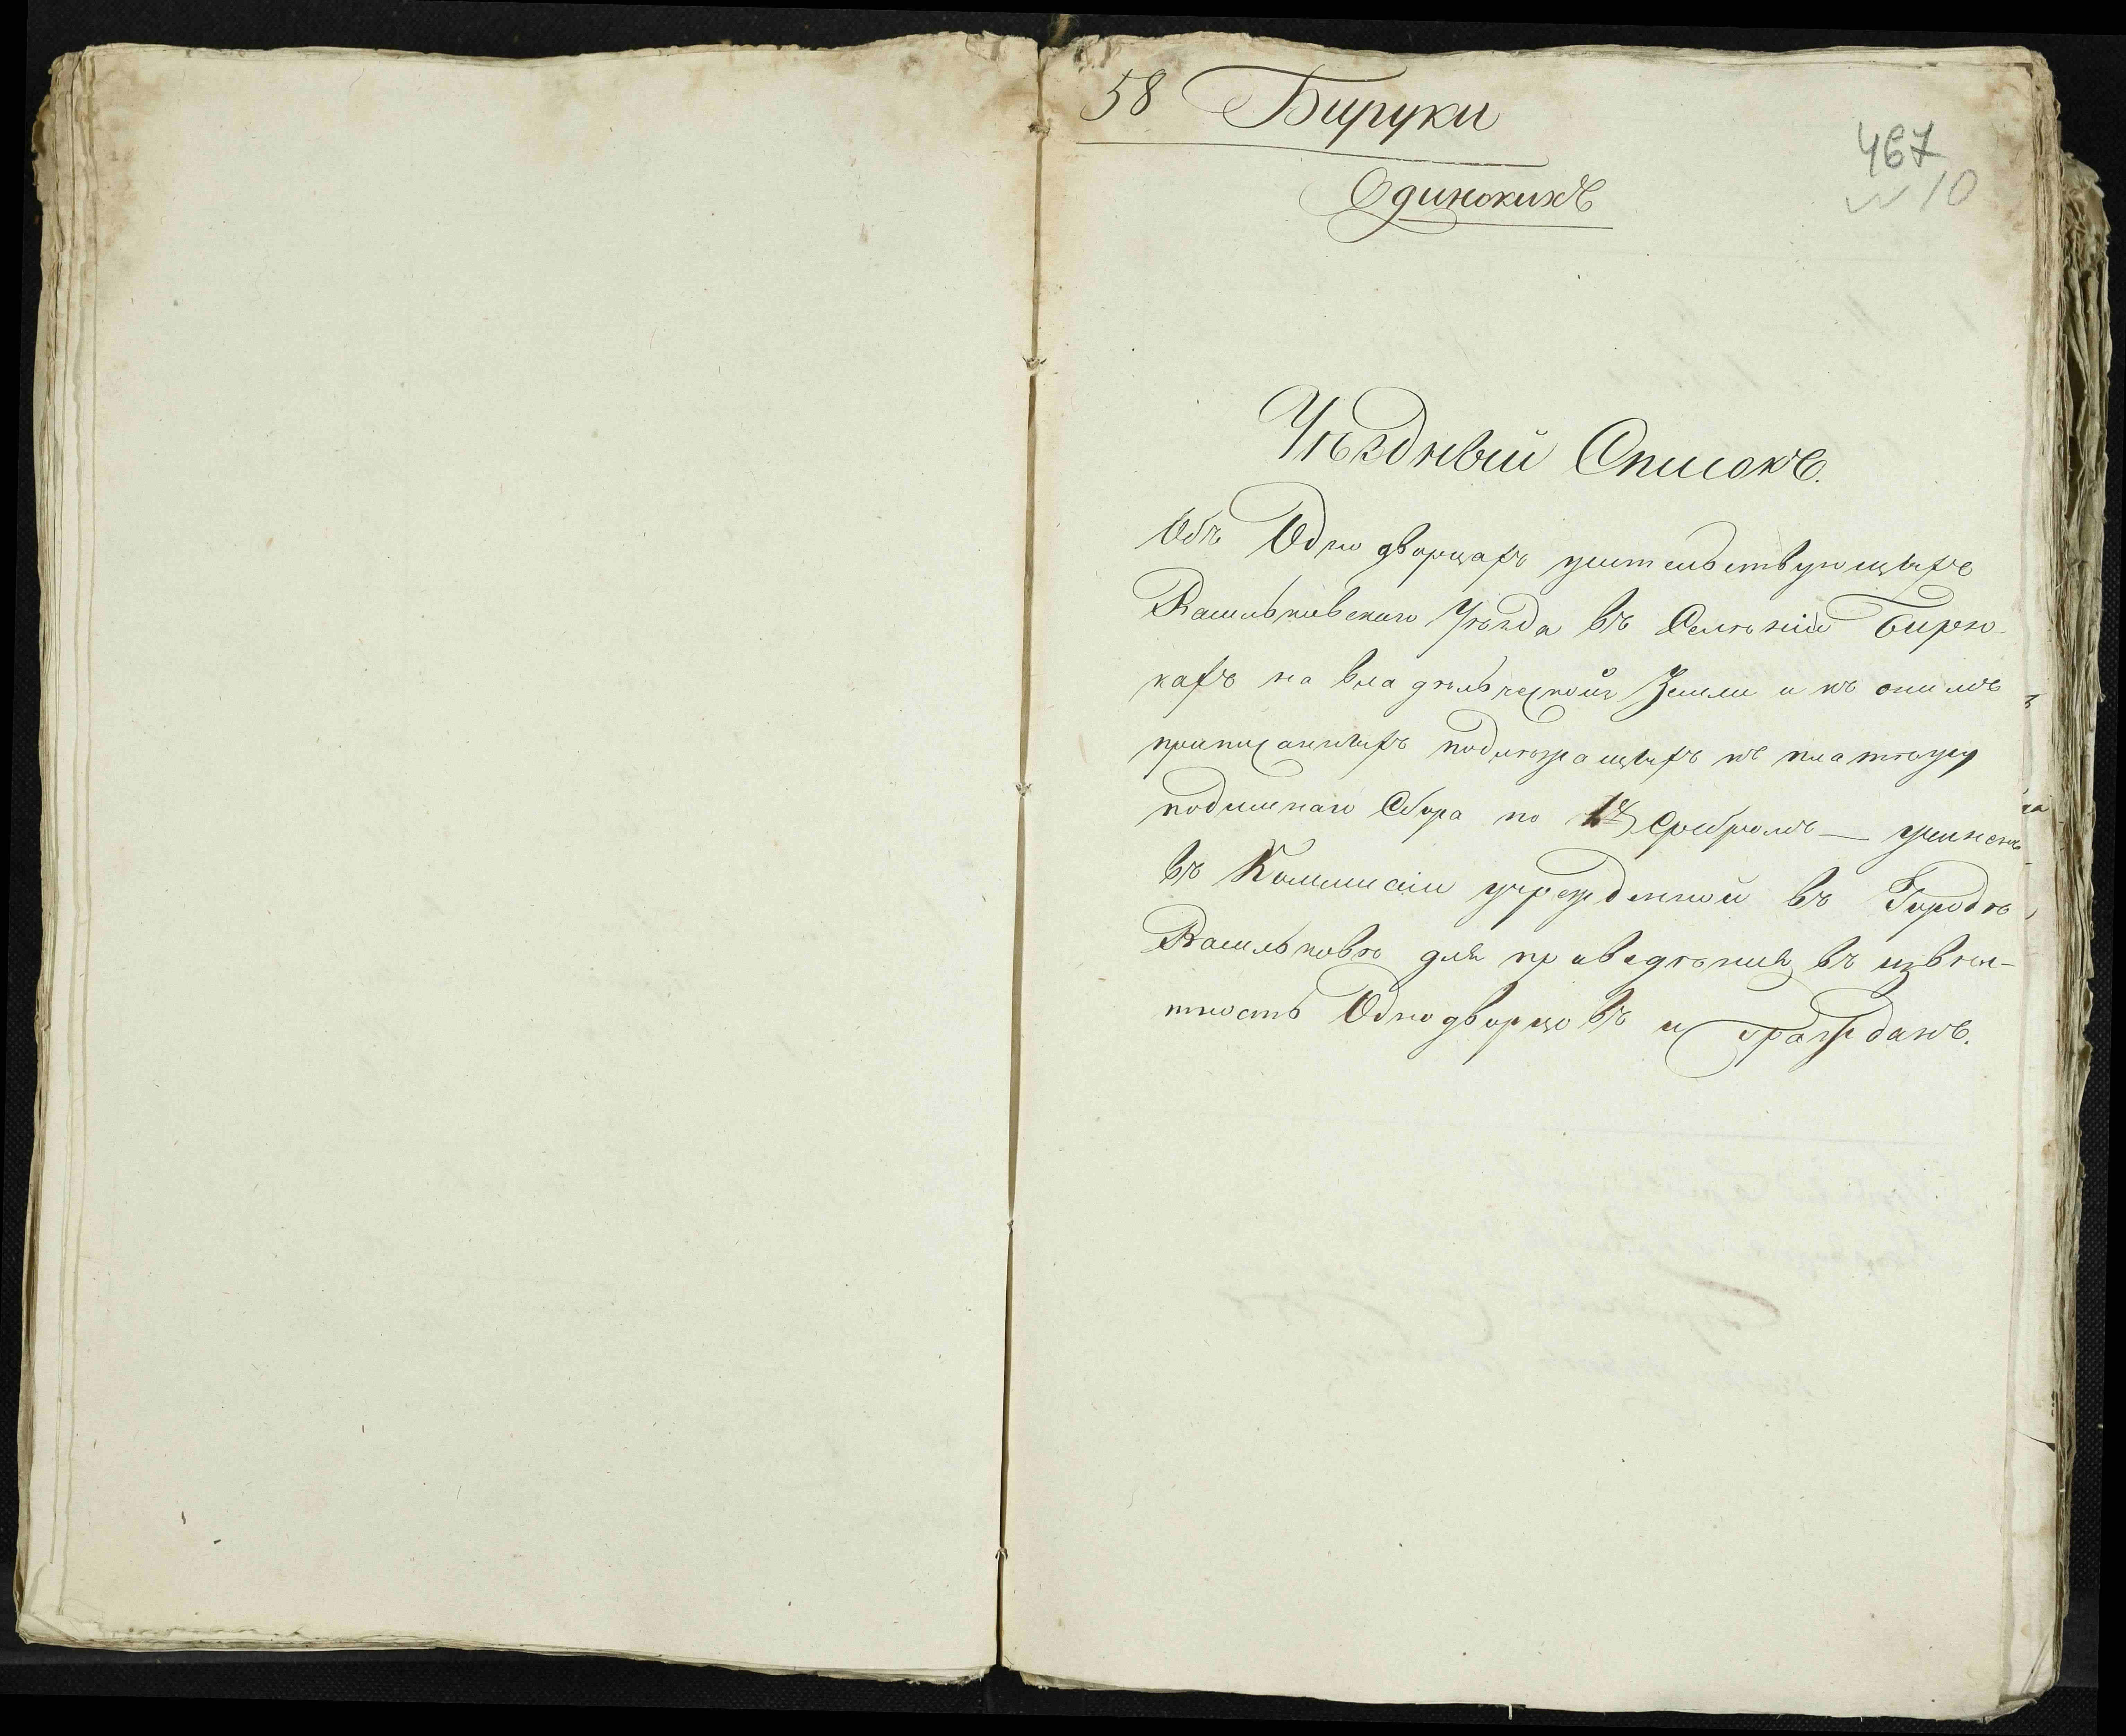 58 Бируки
467
Одинокихъ
10
Уѣздный Списокъ.
Объ Однодворцахъ жительствующихъ
Васильковскаго Уѣзда въ Селѣніи Бирю-
кахъ на владѣльческой Земли и къ онимъ
приписанныхъ подлежащихъ къ платежу
подымнаго Сбора по Сребромъ —
въ Коммисіи учрежденной въ Городѣ
Васильковѣ для приведѣнія въ извѣс-
тность Однодворцовъ и гражданъ.